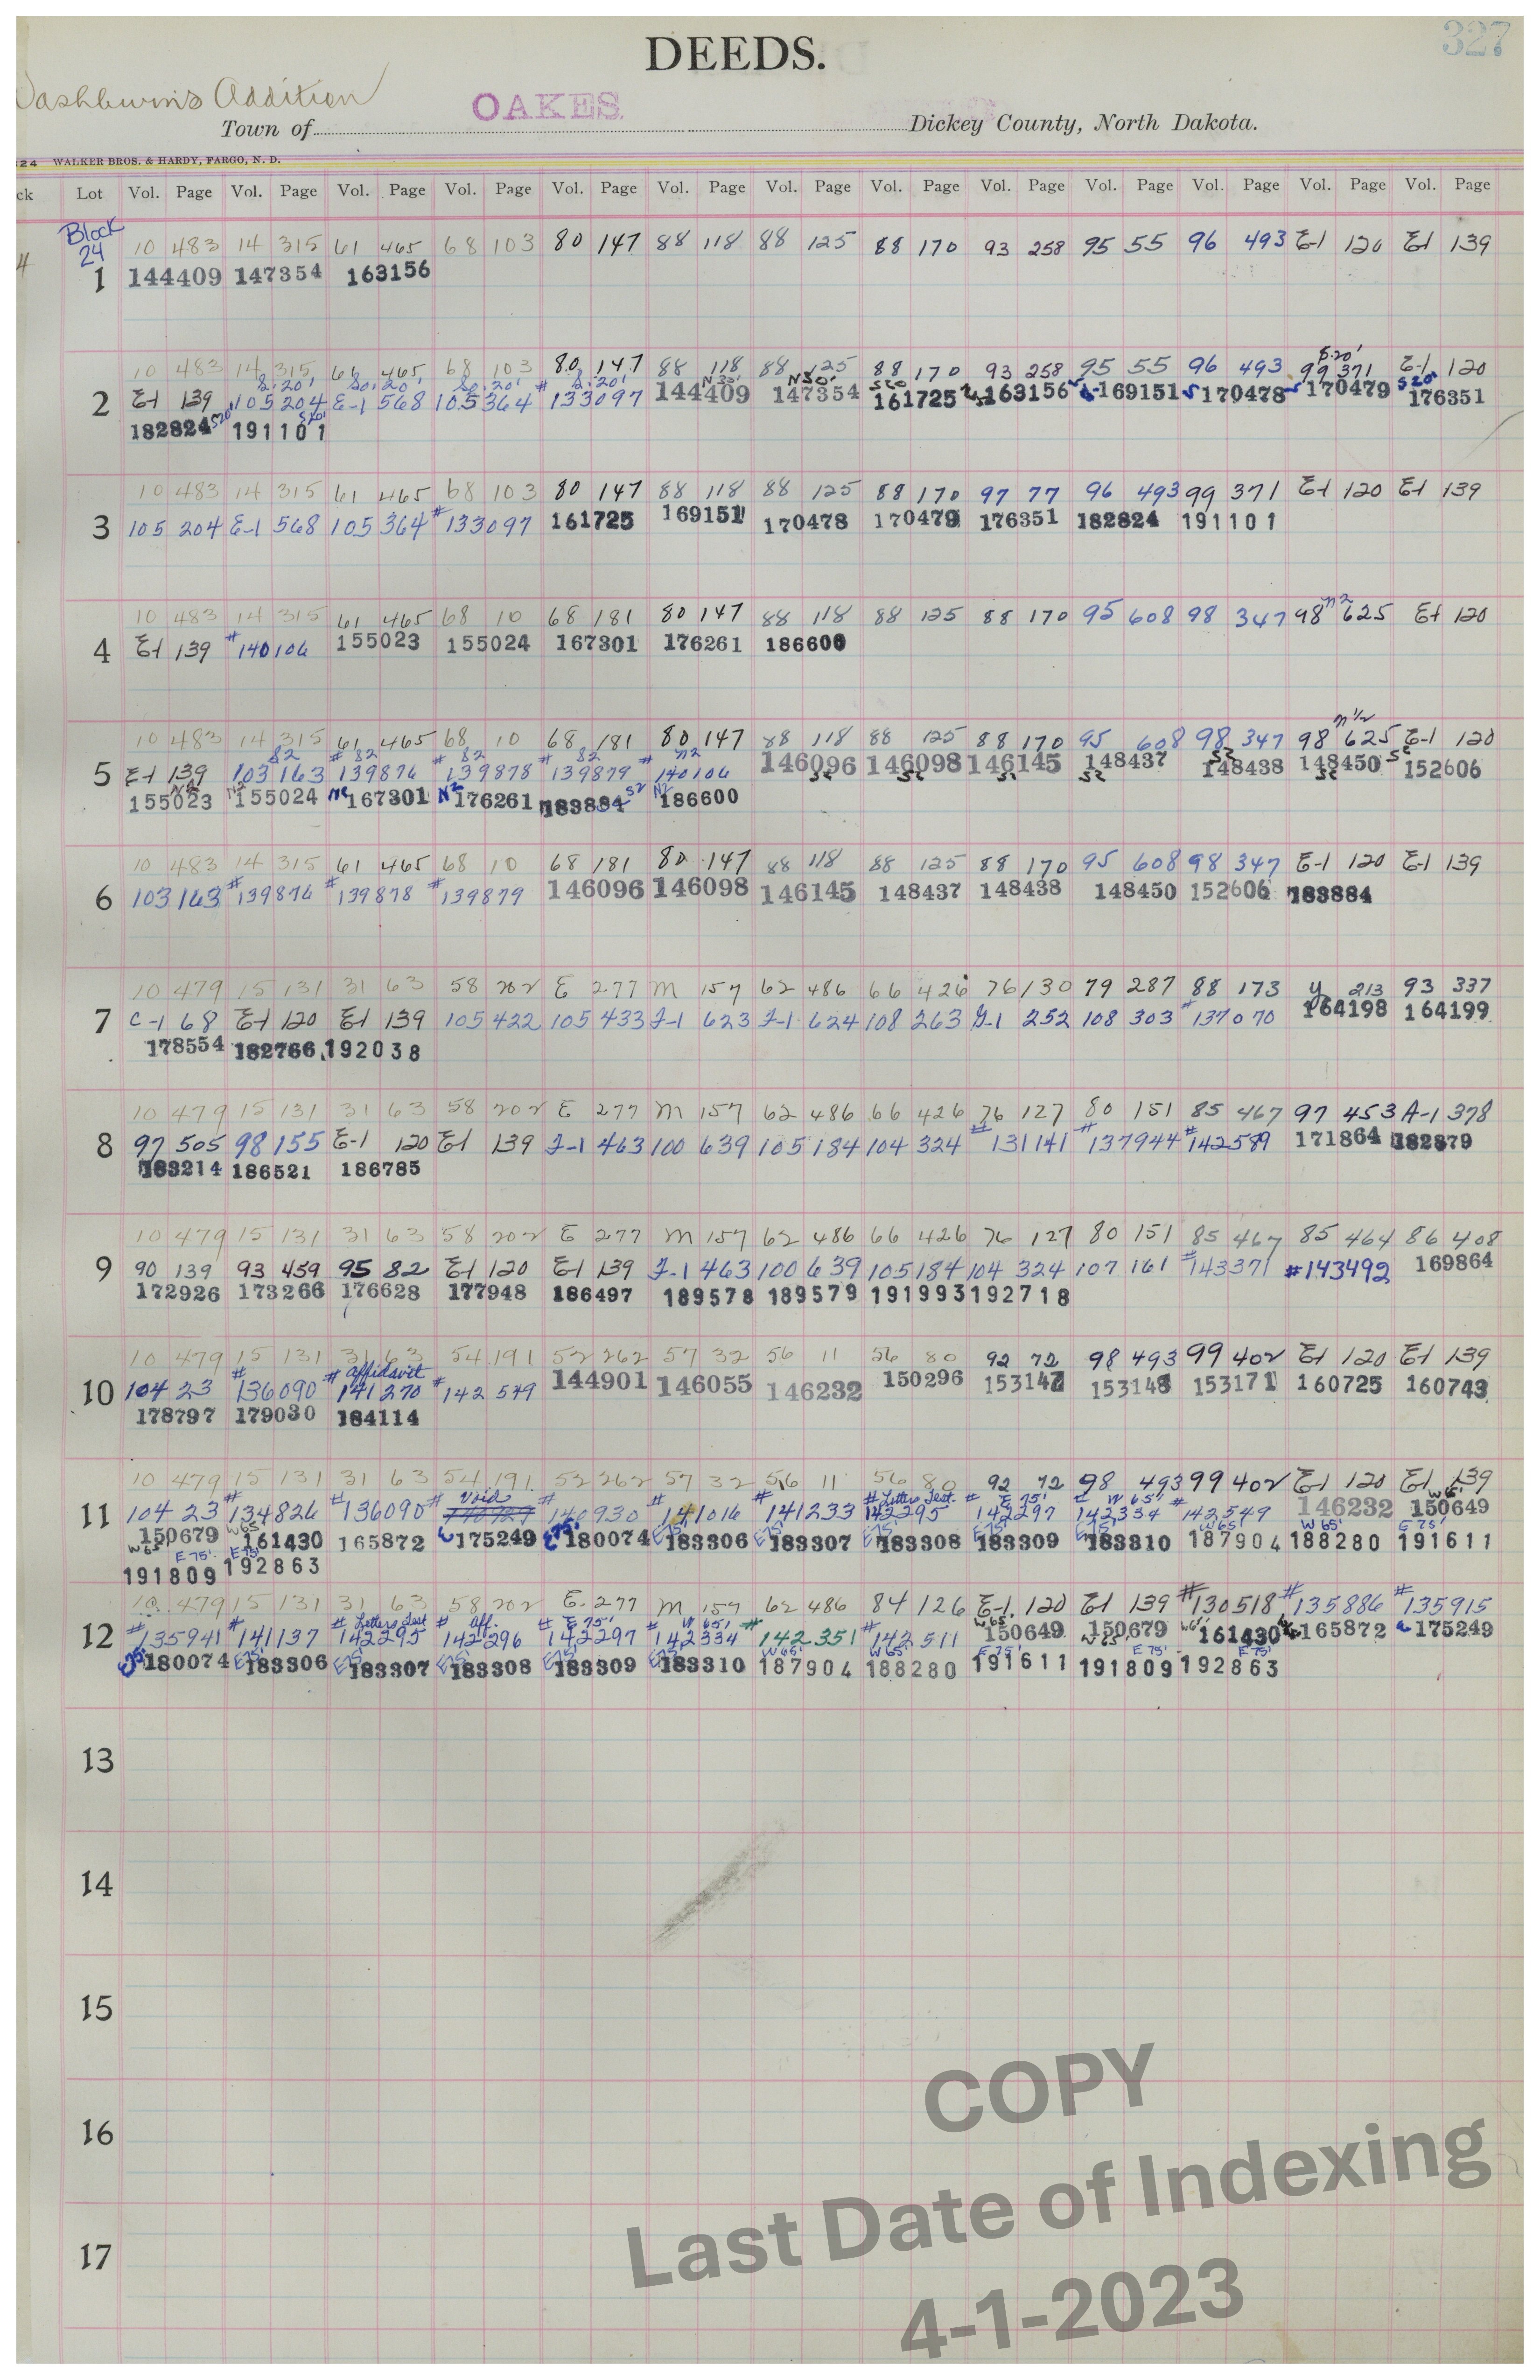 327
DEEDS.
Washburn's Addition
Town of OAKES. Dickey County, North Dakota.
24 WALKER BROS. & HARDY, FARGO, N. D.
ck Lot Vol. Page Vol. Page Vol. Page Vol. Page Vol. Page Vol. Page Vol. Page Vol. Page Vol. Page Vol. Page Vol. Page Vol. Page Vol. Page
Block 24
10 483 14 315 61 465 68 103 80 147 88 118 88 125 88 170 93 258 95 55 96 493 E-1 120 E-1 139
1 144409 147354 163156
S.20'
10 483 14 315 61 465 68 103 80 147 88 118 88 125 88 170 93 258 95 55 96 493 99 371 E-1 120
S.20' So.20' So.20' S.20' N30' N30' S20 S20'
2 E-1 139 105 204 E-1 568 105 364 #133097 144409 147354 161725 163156 169151 170478 170479 176351
182824 S20' 191101 S20'
10 483 14 315 61 465 68 103 80 147 88 118 88 125 88 170 97 77 96 493 99 371 E-1 120 E-1 139
3 105 204 E-1 568 105 364 #133097 161725 169151 170478 170479 176351 182824 191101
10 483 14 315 61 465 68 10 68 181 80 147 88 118 88 125 88 170 95 608 98 347 98 N2 625 E-1 120
4 E-1 139 #140106 155023 155024 167301 176261 186600
N 1/2
10 483 14 315 61 465 68 10 68 181 80 147 88 118 88 125 88 170 95 608 98 347 98 625 E-1 120
S2 S2 S2 S2 N2
5 E-1 139 103 163 #139876 #139878 #139879 #140106 146096 146098 146145 148437 148438 148450 152606
155023 N2 155024 167301 N2 176261 183884 S2 N2 186600
10 483 14 315 61 465 68 10 68 181 80 147 88 118 88 125 88 170 95 608 98 347 E-1 120 E-1 139
6 103 163 #139876 #139878 #139879 146096 146098 146145 148437 148438 148450 152606 183884
10 479 15 131 31 63 58 202 E 277 M 157 62 486 66 426 76 130 79 287 88 173 Y 213 93 337
7 C-1 68 E-1 120 E-1 139 105 422 105 433 F-1 623 F-1 624 108 263 G-1 252 108 303 #137070 164198 164199
178554 182766 192038
10 479 15 131 31 63 58 202 E 277 M 157 62 486 66 426 76 127 80 151 85 467 97 453 A-1 378
8 97 505 98 155 E-1 120 E-1 139 F-1 463 100 639 105 184 104 324 #131141 #137944 #142589 171864 182879
183214 186521 186785
10 479 15 131 31 63 58 202 E 277 M 157 62 486 66 426 76 127 80 151 85 467 85 464 86 408
9 90 139 93 459 95 82 E-1 120 E-1 139 F-1 463 100 639 105 184 104 324 107 161 #143371 #143492 169864
172926 173266 176628 177948 186497 189578 189579 191993 192718
10 479 15 131 31 63 54 191 52 262 57 32 56 11 56 80 92 72 98 493 99 402 E-1 120 E-1 139
Affidavit
10 104 23 #136090 #141270 #142549 144901 146055 146232 150296 153147 153148 153171 160725 160743
178797 179030 184114
10 479 15 131 31 63 54 191 52 262 57 32 56 11 56 80 92 72 98 493 99 402 E-1 120 E-1 139
Void Letters Test. E 75' W 65' W 65'
11 104 23 #134826 #136090 #140930 #141016 #141233 #142295 #142297 #142334 #142549 146232 150649
W 65' E 75' E75' E75' E75' E75' E75' W 65' W 65' E 75'
150679 161430 165872 175249 180074 183306 183307 183308 183309 183310 187904 188280 191611
W 65' E 75' E 75'
191809 192863
10 479 15 131 31 63 58 202 E 277 M 157 62 486 84 126 E-1 120 E-1 139 #130518 #135886 #135915
Letters Test Aff. E 75' W 65' W 65' W 65' W 65'
12 #135941 #141137 #142295 #142296 #142297 #142334 #142351 #142511 150649 150679 161430 165872 175249
E75' E75' E75' E75' E75' E75' W 65' W 65' E 75' E 75' E 75'
180074 183306 183307 183308 183309 183310 187904 188280 191611 191809 192863
13
14
15
16
17
COPY
Last Date of Indexing
4-1-2023